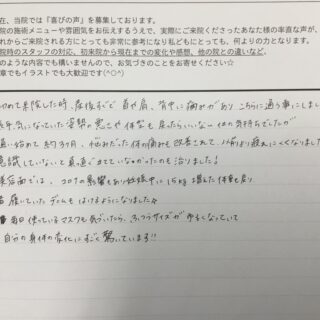 在、当院では「喜びの声」を募集しております。
院の施術メニューや雰囲気をお伝えするうえで、実際にご来院くださったあなた様の率直な声が、
れからご来院される方にとっても非常に参考になり私どもにとっても、何よりの力となります。
院時のスタッフの対応、初来院から現在までの症状の変化や感想、他の院との違いなど、
のような内容でも構いませんので、お気づきのことをお寄せください☆
章でもイラストでも大歓迎です(^○^)
初めて来院した時、産後すぐ 首や肩、背中に痛みがあり こちらに通う事にしまし
気になっていた姿勢の悪さや体型も戻ったらいいな くらいの気持ちでしたが
通い始めて 約3ヶ月、悩みだった体の痛みも改善されて 以前より疲れにくくなりました
意識していないと真直ぐ立てていなかったのも治りました!
では、コロナの影響もあり妊娠中に15kg増えた体重も戻り
履いていたデニムもはけるようになりました☆
毎日使っているマスクも気づいたら、ふつうサイズが 大きくなっていて
自分の身体の変化にすごく驚いています!!